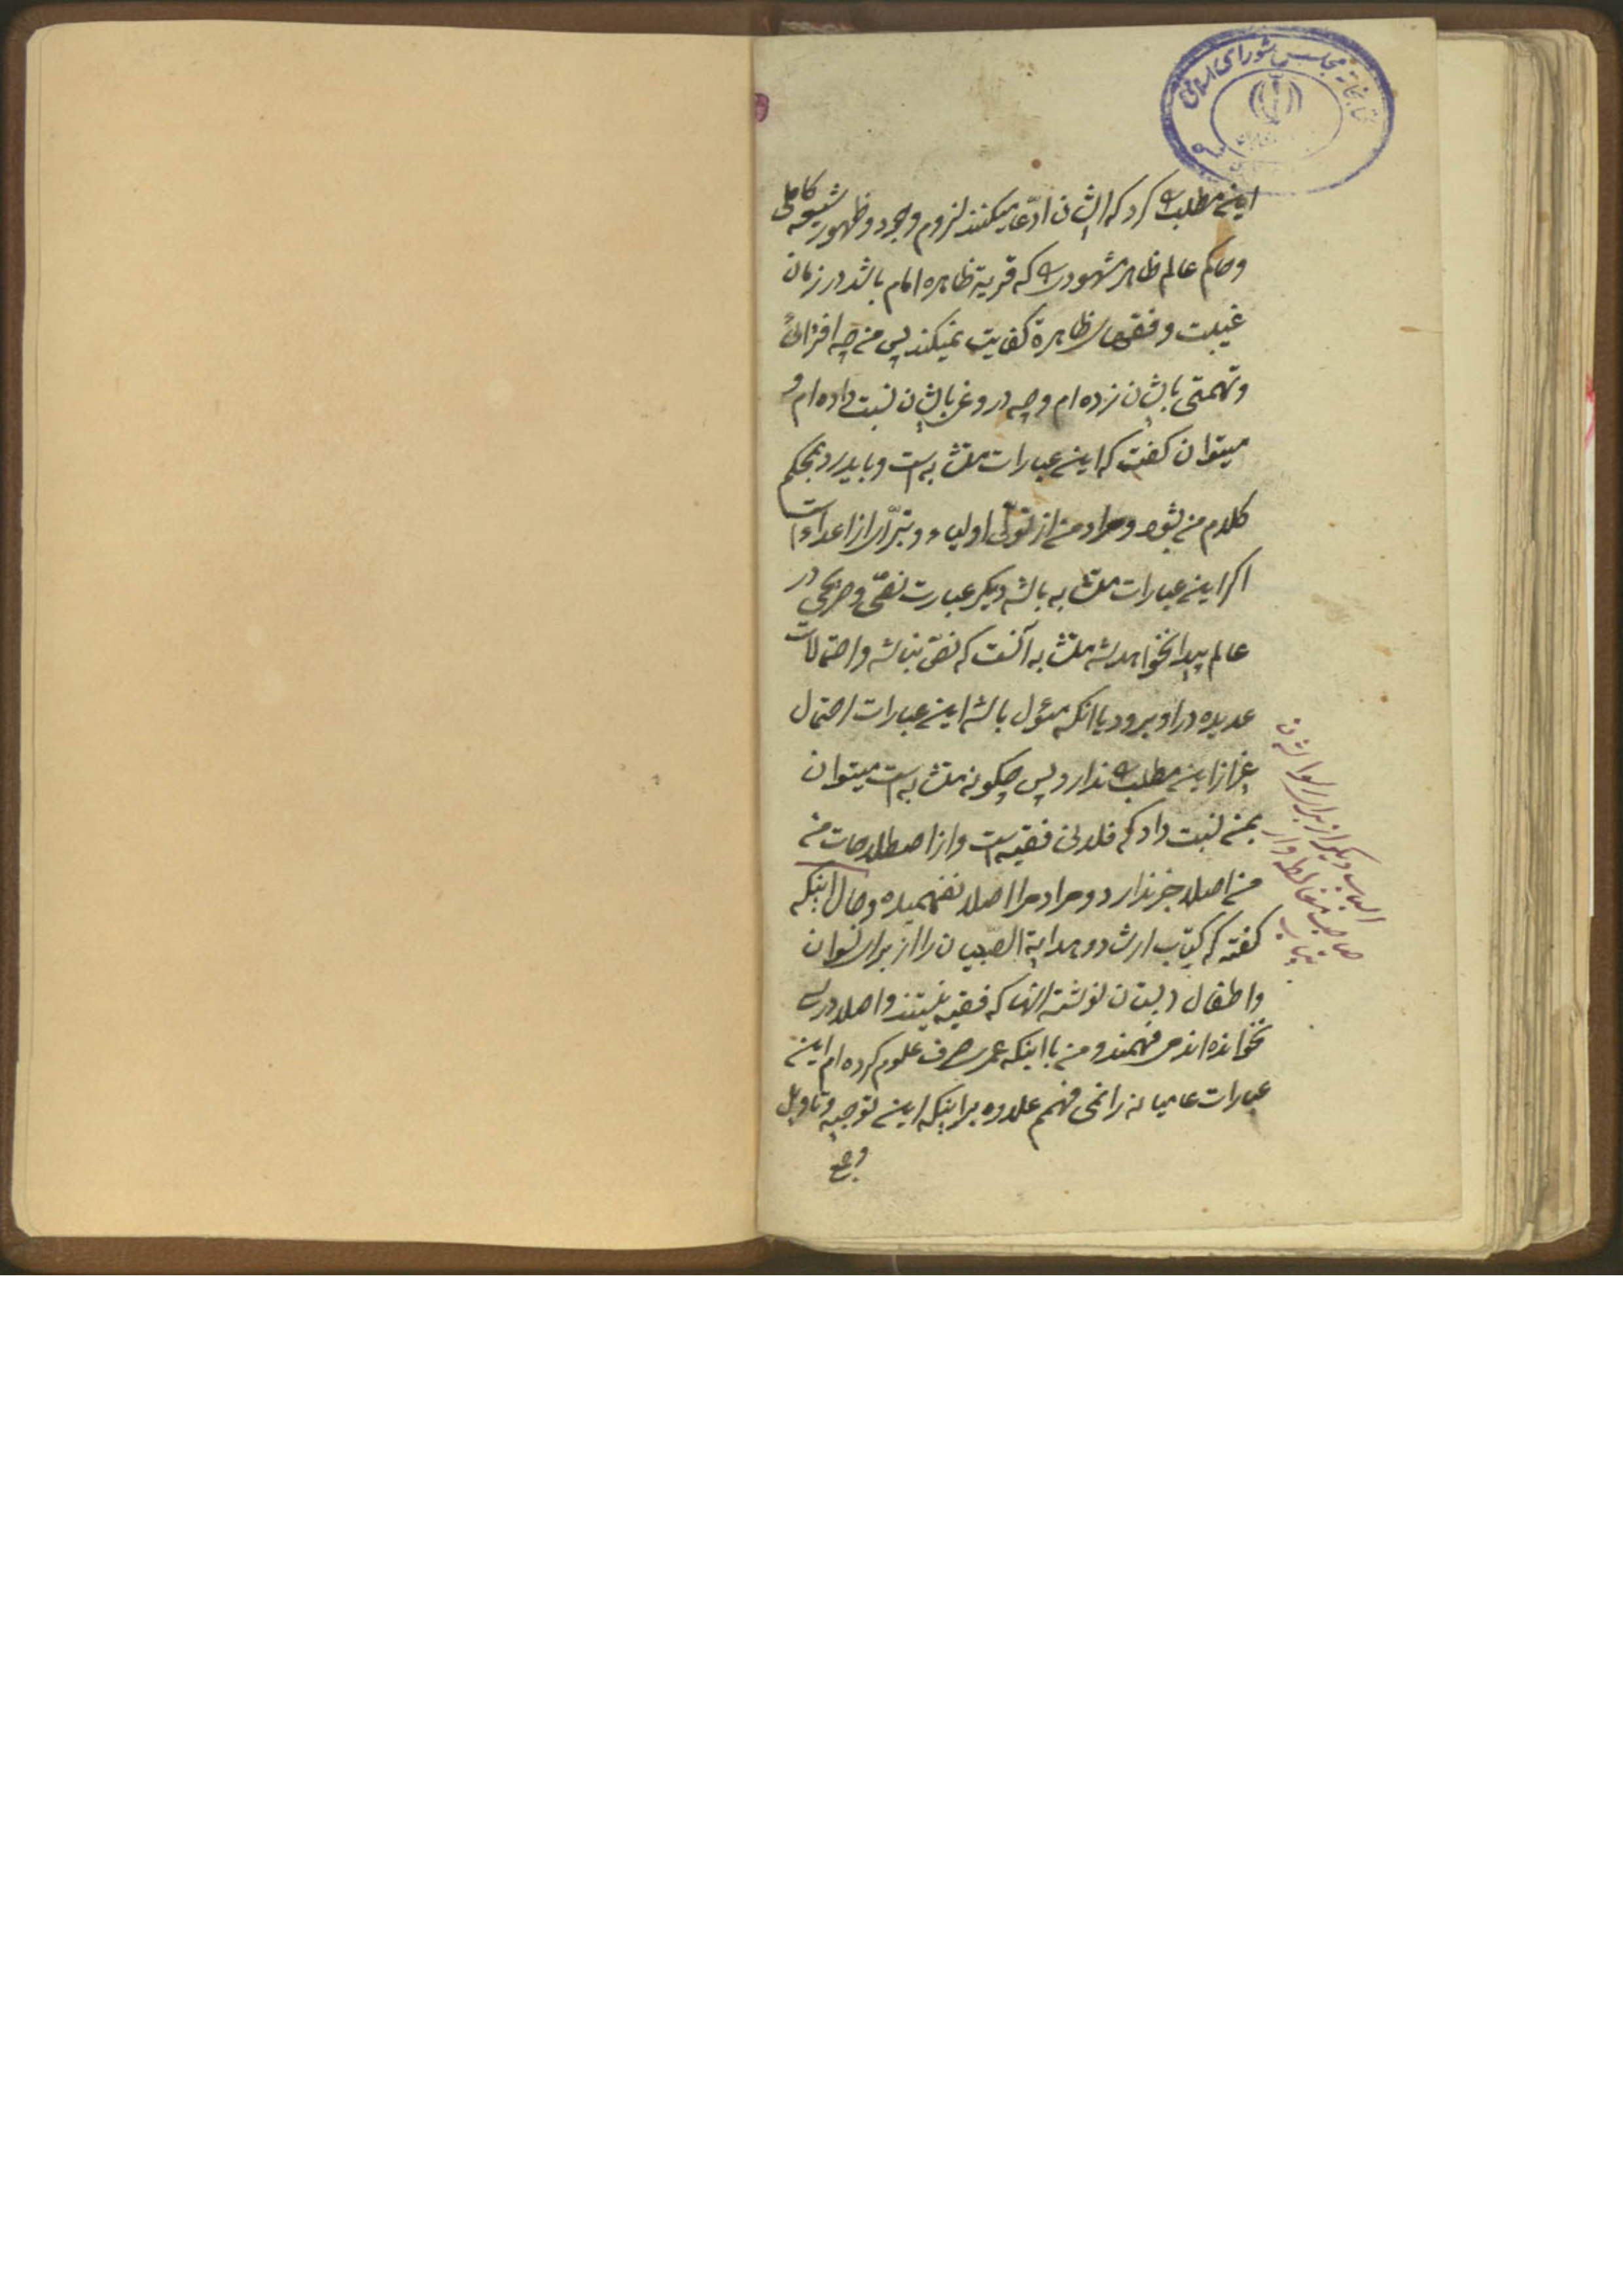 کتابخانه مجلس شورای اسلامی
این مطلب را کرد که ایشان ادّعا میکنند لزوم وجود و ظهور شیعه کاملی
و حاکم عالم ظاهر مشهودی را که قریة ظاهره امام باشد در زمان
غیبت و فقهای ظاهرة کفایت نمیکند پس من چه افترائی
و تهمتی بایشان نزده ام و چه دروغ بایشان نسبت داده ام و
میتوان کفت که این عبارات متشابه است و باید رد بمحکم
کلام من بشود و مراد من از تولّی اولیاء و تبرّای از اعداء است
اکر این عبارات متشابه باشد دیکر عبارت نصّی و صریحی در
عالم پیدا نخواهد شد متشابه آنست که نصّ نباشد و احتمالات
عدیده در او برود یا انکه مؤل باشد این عبارات احتمال
غیر از این مطلب را ندارد پس چکونه متشابه است میتوان
بمن نسبت داد که فلانی فقیه است و از اصطلاحات من
من اصلا خبر ندارد و مراد مرا اصلا نفهمیده و حال اینکه
کفته که کتاب ارشاد و هدایة الصّبیان را از برای نسوان
و اطفال دبستان نوشته انها که فقیه نیستند و اصلا درسی
نخوانده اند می فهمند و من با اینکه عمری صرف علوم کرده ام این
عبارات عامیانه را نمی فهمم علاوه بر اینکه این توجیه و تاویل
و جمع
دیکر از برای
صاحب مغالطه